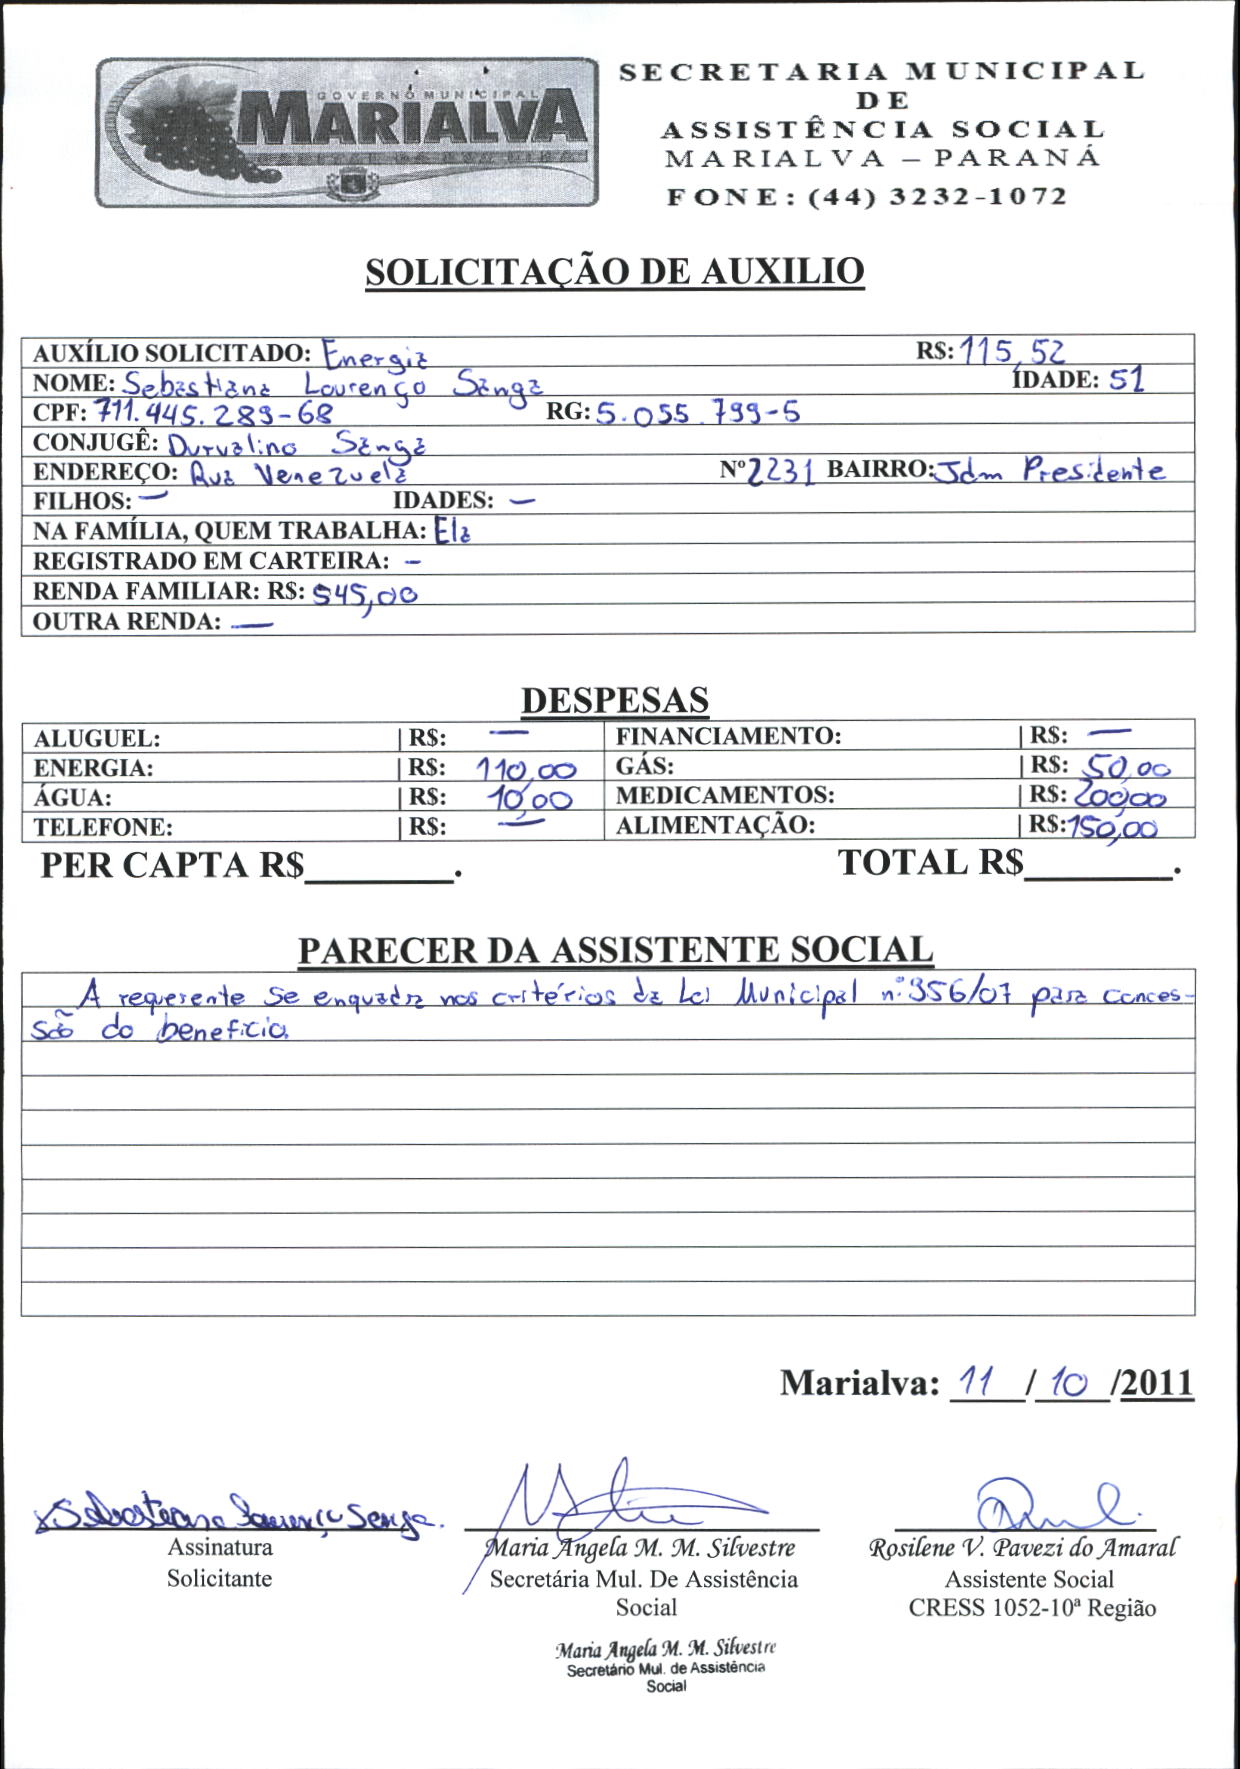 GOVERNO MUNICIPAL
MARIALVA
SECRETARIA MUNICIPAL
DE
ASSISTÊNCIA SOCIAL
MARIALVA – PARANÁ
FONE: (44) 3232-1072
SOLICITAÇÃO DE AUXILIO
AUXÍLIO SOLICITADO: Energia R$: 115,52
NOME: Sebastiana Lourenço Sanga IDADE: 51
CPF: 711.445.289-68 RG: 5.055.799-5
CONJUGÊ: Durvalino Sanga
ENDEREÇO: Rua Venezuela Nº 2231 BAIRRO: Jdm Presidente
FILHOS: — IDADES: —
NA FAMÍLIA, QUEM TRABALHA: Ela
REGISTRADO EM CARTEIRA: –
RENDA FAMILIAR: R$: 545,00
OUTRA RENDA: —
DESPESAS
ALUGUEL: | R$: — FINANCIAMENTO: | R$: —
ENERGIA: | R$: 110,00 GÁS: | R$: 50,00
ÁGUA: | R$: 10,00 MEDICAMENTOS: | R$: 200,00
TELEFONE: | R$: — ALIMENTAÇÃO: | R$: 150,00
PER CAPTA R$________. TOTAL R$________.
PARECER DA ASSISTENTE SOCIAL
A requerente se enquadra nos critérios da Lei Municipal nº 956/07 para conces-
são do benefício.
Marialva: 11 / 10 /2011
x Sebasteana Lourenço Senga.
Assinatura
Solicitante
Maria Angela M. M. Silvestre
Secretária Mul. De Assistência
Social
Rosilene V. Pavezi do Amaral
Assistente Social
CRESS 1052-10ª Região
Maria Angela M. M. Silvestre
Secretário Mul. de Assistência
Social